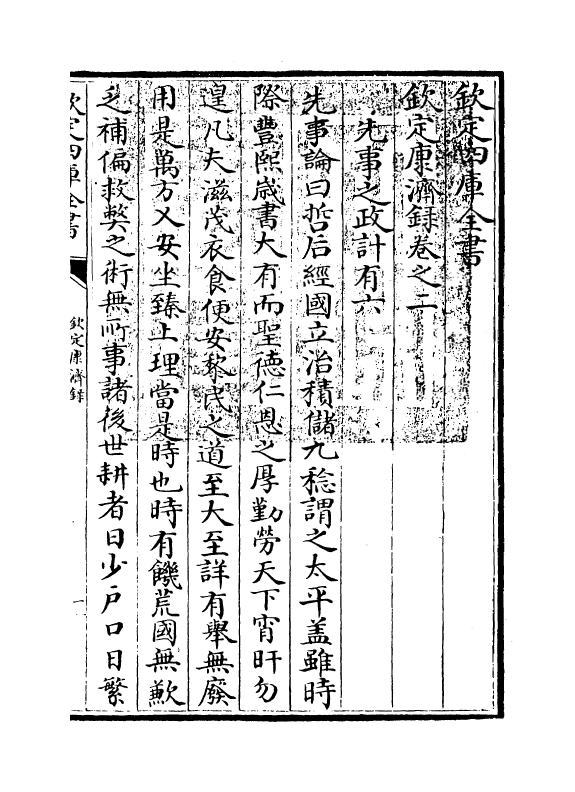 欽定四庫全書
欽定康濟録卷之二
先事之政計有六
先事論曰哲后經國立治積儲九稔謂之太平盖雖時
際豐熙歳書大有而聖德仁恩之厚勤勞天下宵旰勿
遑凡夫滋茂衣食便安黎民之道至大至詳有舉無廢
用是萬方乂安坐臻上理當是時也時有饑荒國無歉
乏補偏救弊之術無所事諸後世耕者日少户口日繁
欽定四庫全書
欽定康濟録
一